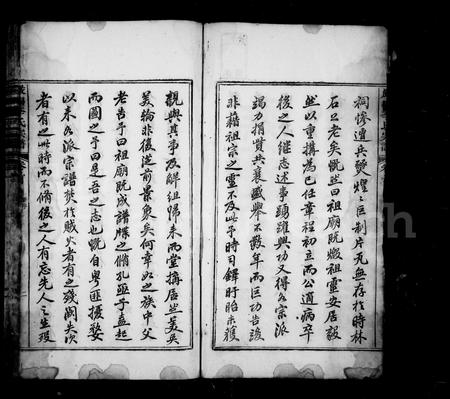 祠慘遭兵燹煌煌巨制片瓦無存於時林
石公老矣慨然曰祖廟既燬祖靈安居毅
然以重搆為己任章程初立而公遘病卒
後之人繼志述事踴躍興功又得各宗派
竭力捐貲共襄盛舉不數年而巨功告竣
非藉祖宗之靈不及此予時司鐸盱眙未獲
觀與其事及解組歸來而堂搆居然美矣
美輪非復從前景象矣何幸如之族中父
老告予曰祖廟既成譜牒之脩孔亟予盍起
而圖之予曰是吾之志也慨自粵匪擾婺
以來各派宗譜焚於賊火者有之殘闕失次
者有之此時而不脩後之人有忘先人之生歿